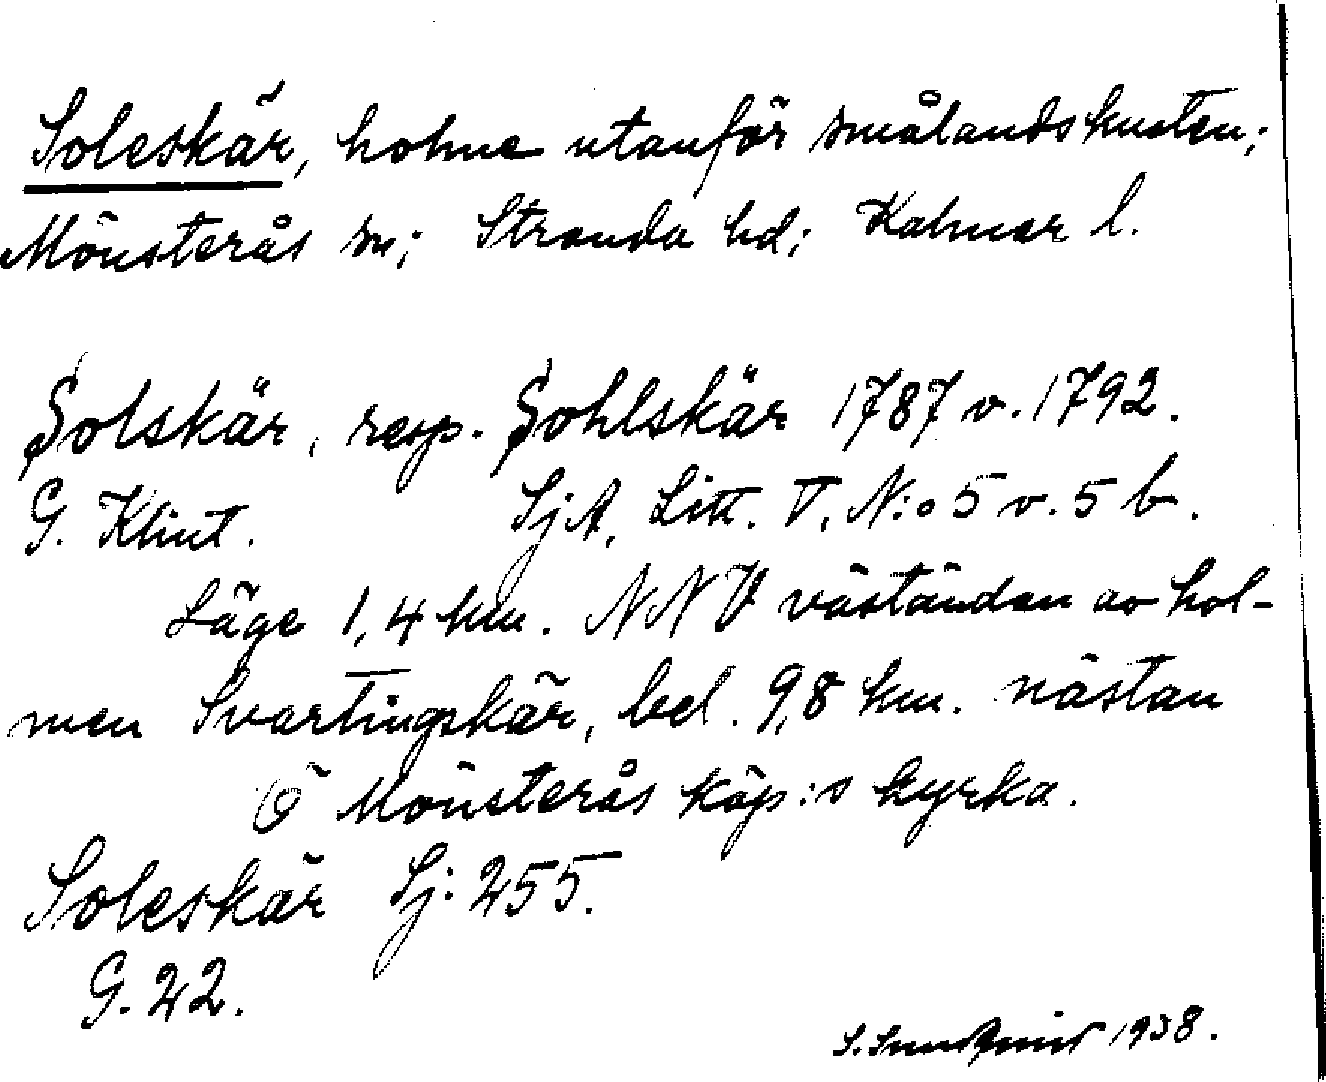 Soleskär, holme utanför smålandskusten;
Mönsterås sn; Stranda hd; Kalmar l.
Solskär, resp. Sohlskär 1787 v. 1792.
G. Klint. SjA, Litt. V, N:o 5 v. 5 b.
Läge 1,4 km. NNV väständan av hol-
men Svartingskär, bel. 9,8 km. nästan
Ö Mönsterås köp:s kyrka.
Soleskär Sj: 255.
G. 22.
S. 1938.